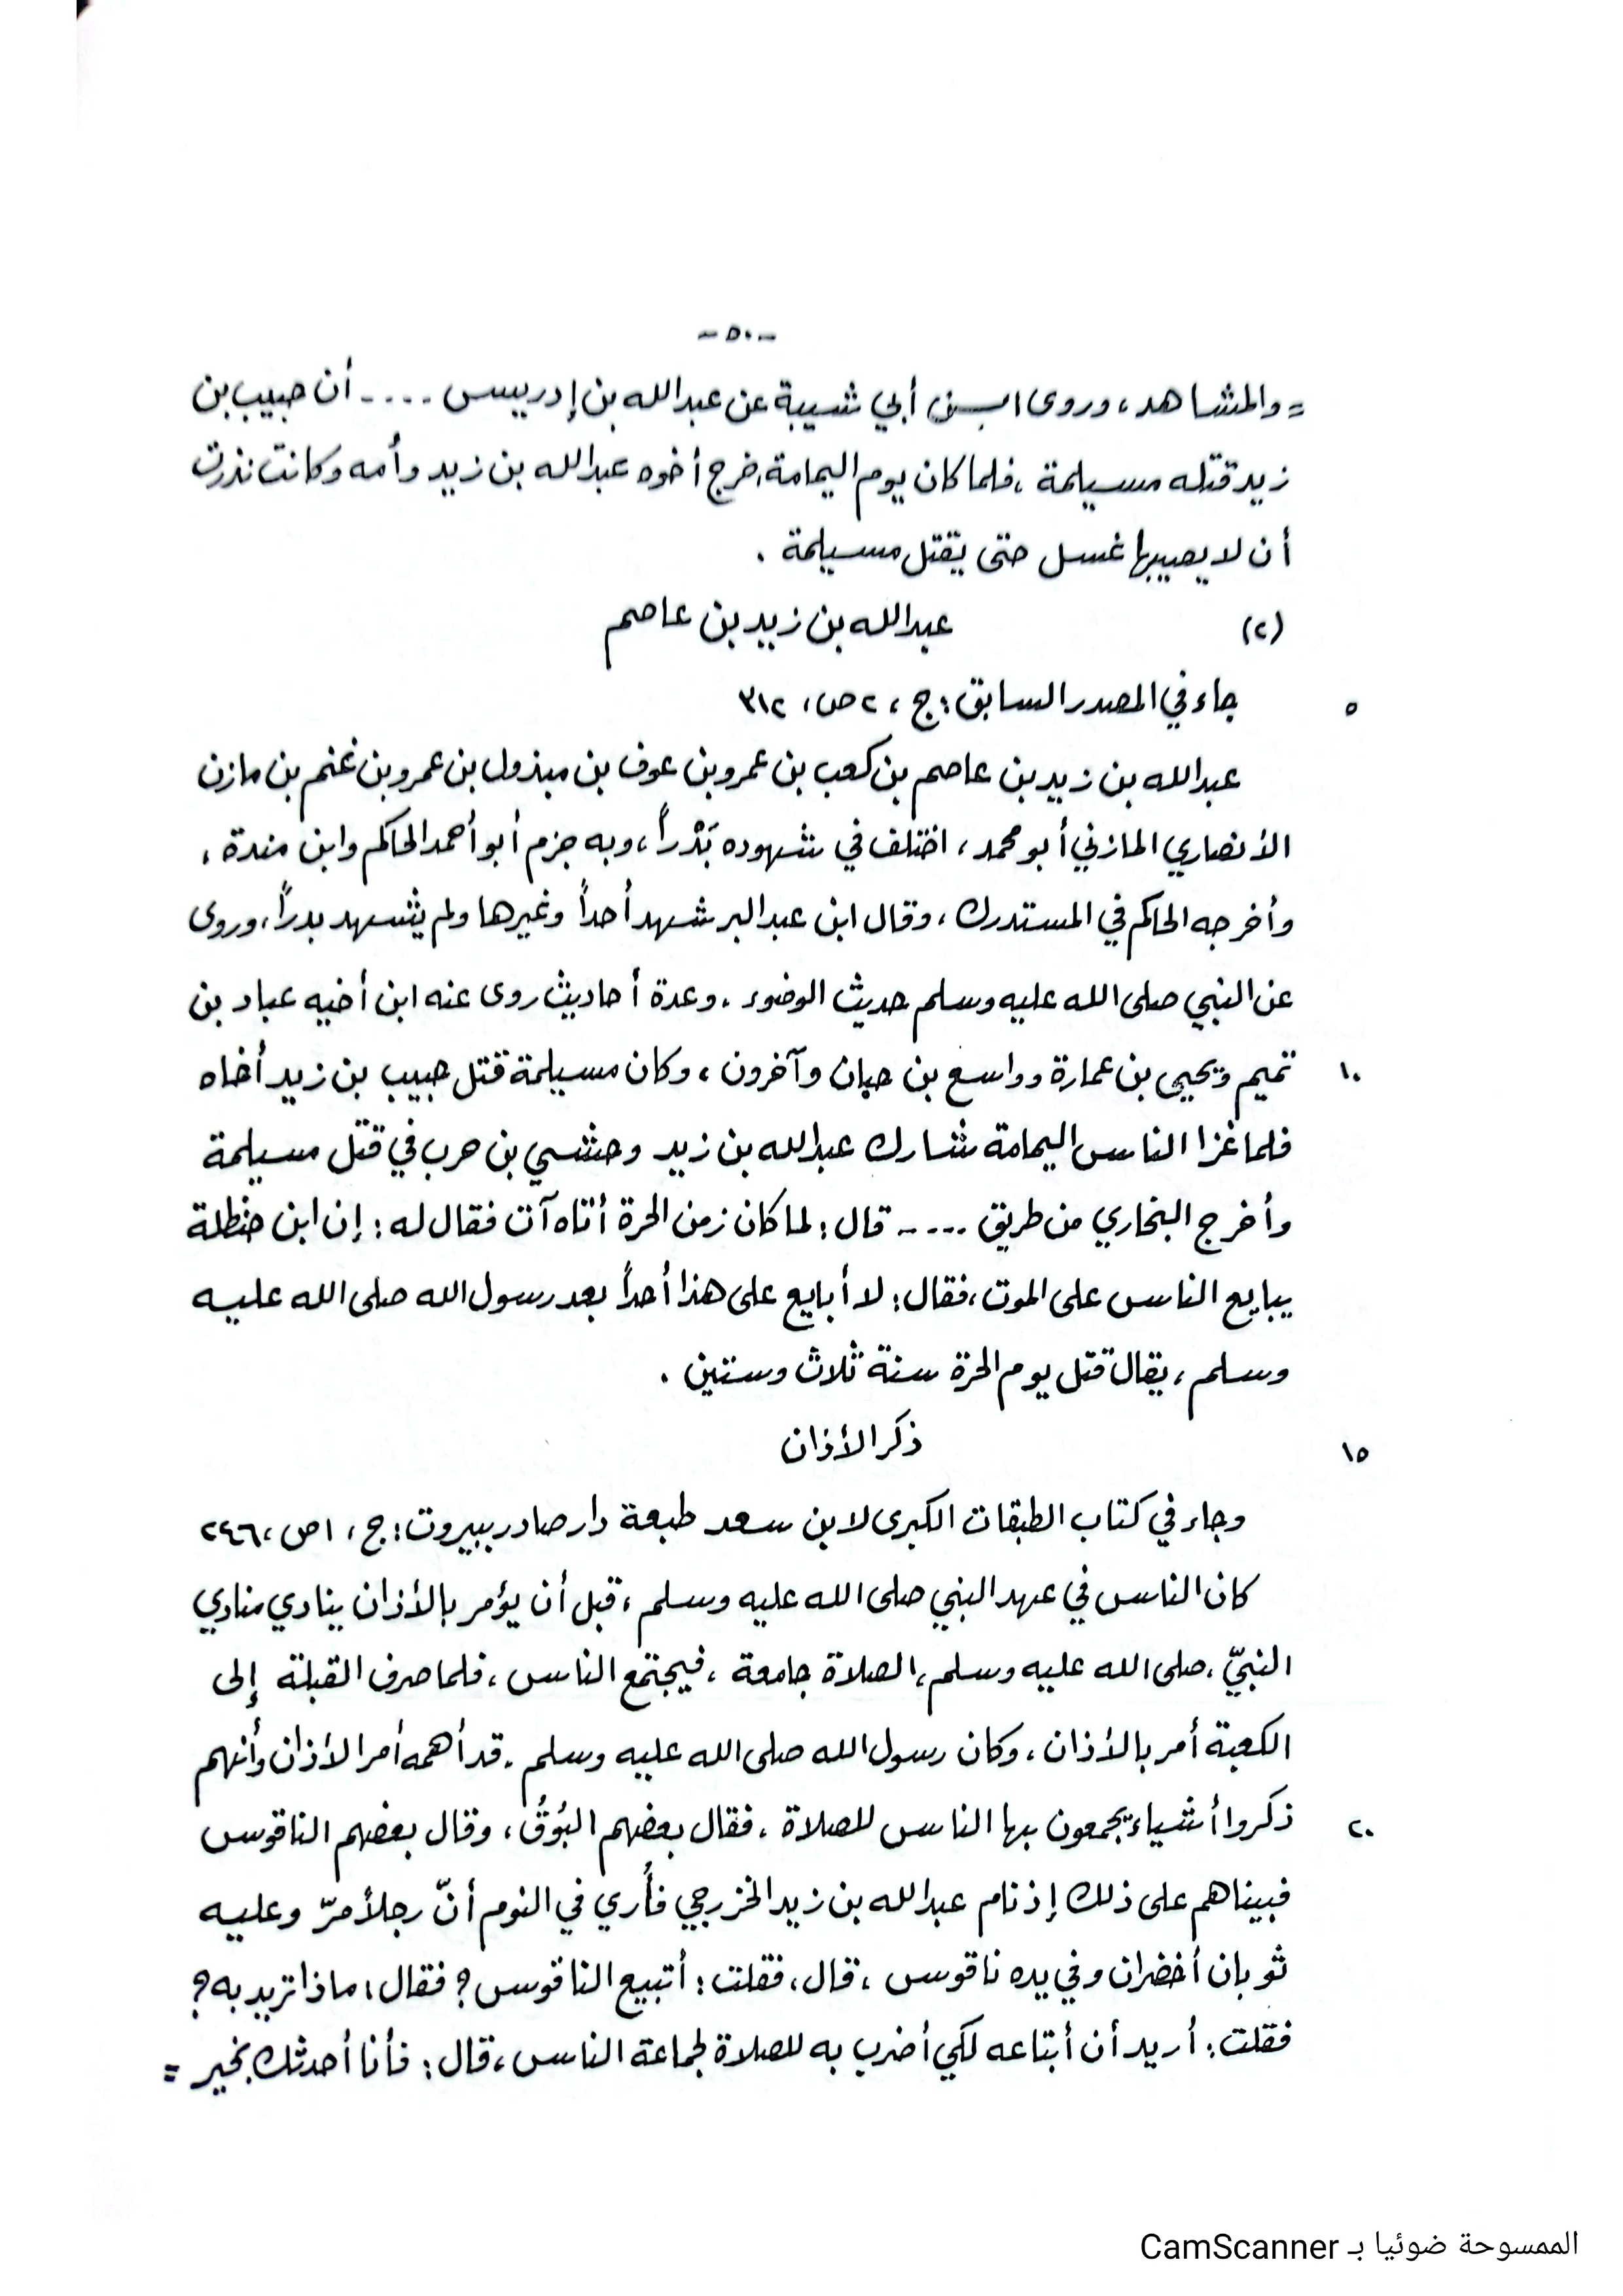 -٥٠-
= والمشاهد، وروى ابن أبي شيبة عن عبدالله بن إدريس .... أن حبيب بن
زيد قتله مسيلمة، فلما كان يوم اليمامة، خرج أخوه عبدالله بن زيد وأمه وكانت نذرت
أن لا يصيبها غسل حتى يقتل مسيلمة .
(٢) عبدالله بن زيد بن عاصم
٥ جاء في المصدر السابق: ج، ٢ ص، ٣١٢
عبدالله بن زيد بن عاصم بن كعب بن عمرو بن عوف بن مبذول بن عمرو بن غنم بن مازن
الأنصاري المازني أبو محمد، اختلف في شهوده بَدْراً، وبه جزم أبو أحمد الحاكم وابن مندة،
وأخرجه الحاكم في المستدرك، وقال ابن عبد البر شهد أحداً وغيرها ولم يشهد بدراً، وروى
عن النبي صلى الله عليه وسلم حديث الوضوء، وعدة أحاديث روى عنه ابن أخيه عباد بن
١٠ تميم ويحيى بن عمارة وواسع بن حبان وآخرون، وكان مسيلمة قتل حبيب بن زيد أخاه
فلما غزا الناس اليمامة شارك عبدالله بن زيد وحشي بن حرب في قتل مسيلمة
وأخرج البخاري من طريق ..... قال: لما كان زمن الحرة أتاه آت فقال له: إن ابن حنظلة
يبايع الناس على الموت، فقال: لا أبايع على هذا أحداً بعد رسول الله صلى الله عليه
وسلم، يقال قتل يوم الحرة سنة ثلاث وستين .
١٥ ذكر الأذان
وجاء في كتاب الطبقات الكبرى لابن سعد طبعة دار صادر ببيروت: ج، ١ ص، ٢٤٦
كان الناس في عهد النبي صلى الله عليه وسلم، قبل أن يؤمر بالأذان ينادي منادي
النبيّ، صلى الله عليه وسلم، الصلاة جامعة، فيجتمع الناس، فلما صرف القبلة إلى
الكعبة أمر بالأذان، وكان رسول الله صلى الله عليه وسلم. قد أهمه أمر الأذان وأنهم
٢٠ ذكروا أشياء يجمعون بها الناس للصلاة، فقال بعضهم البُوقُ، وقال بعضهم الناقوس
فبينا هم على ذلك إذ نام عبدالله بن زيد الخزرجي فأُري في النوم أنّ رجلاً مرّ وعليه
ثوبان أخضران وفي يده ناقوس، قال، فقلت: أتبيع الناقوس؟ فقال، ماذا تريد به؟
فقلت: أريد أن أبتاعه لكي أضرب به للصلاة لجماعة الناس، قال: فأنا أحدثك بخير =
الممسوحة ضوئيا بـ CamScanner